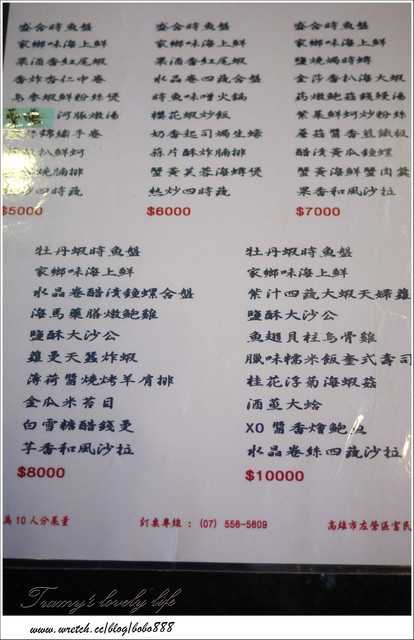 盛合時魚盤
家鄉味海上鮮
果酒香紅尾蝦
香炸杏仁中卷
烏參蝦鮮粉絲煲
河豚燉湯
錦繡手卷
扒鮮蚵
燒腩排
四時蔬
$5000
盛合時魚盤
家鄉味海上鮮
果酒香紅尾蝦
水晶卷四蔬合盤
時魚味噌火鍋
櫻花蝦炒飯
奶香起司焗生蠔
蒜片酥炸腩排
蟹黃芙蓉海鱘煲
熱炒四時蔬
$6000
盛合時魚盤
家鄉味海上鮮
鹽燒焗時蟳
金莎香扒海大蝦
藥燉鮑菇錢鰻湯
紫菜鮮蚵炒粉絲
蘑菇醬香煎鐵板
醋漬黃瓜鍾螺
蟹黃海鮮蟹肉羹
果香和風沙拉
$7000
牡丹蝦時魚盤
家鄉味海上鮮
水晶卷醋漬鍾螺合盤
海馬藥膳燉鮑雞
鹽酥大沙公
羅曼天蠶炸蝦
薄荷醬燒烤羊肩排
金瓜米苔目
白雪糖醋錢曼
芋香和風沙拉
$8000
牡丹蝦時魚盤
家鄉味海上鮮
紫汁四蔬大蝦天婦羅
鹽酥大沙公
魚翅貝柱烏骨雞
臘味糯米飯奎式壽司
桂花浮菊海蝦菇
酒蒸大蛤
XO 醬香燴鮑魚
水晶卷絲四蔬沙拉
$10000
為 10 人分菜量
訂桌專線：(07) 556-5609
高雄市左營區富民
Tramy's lovely life
www.wretch.cc/blog/bobo888